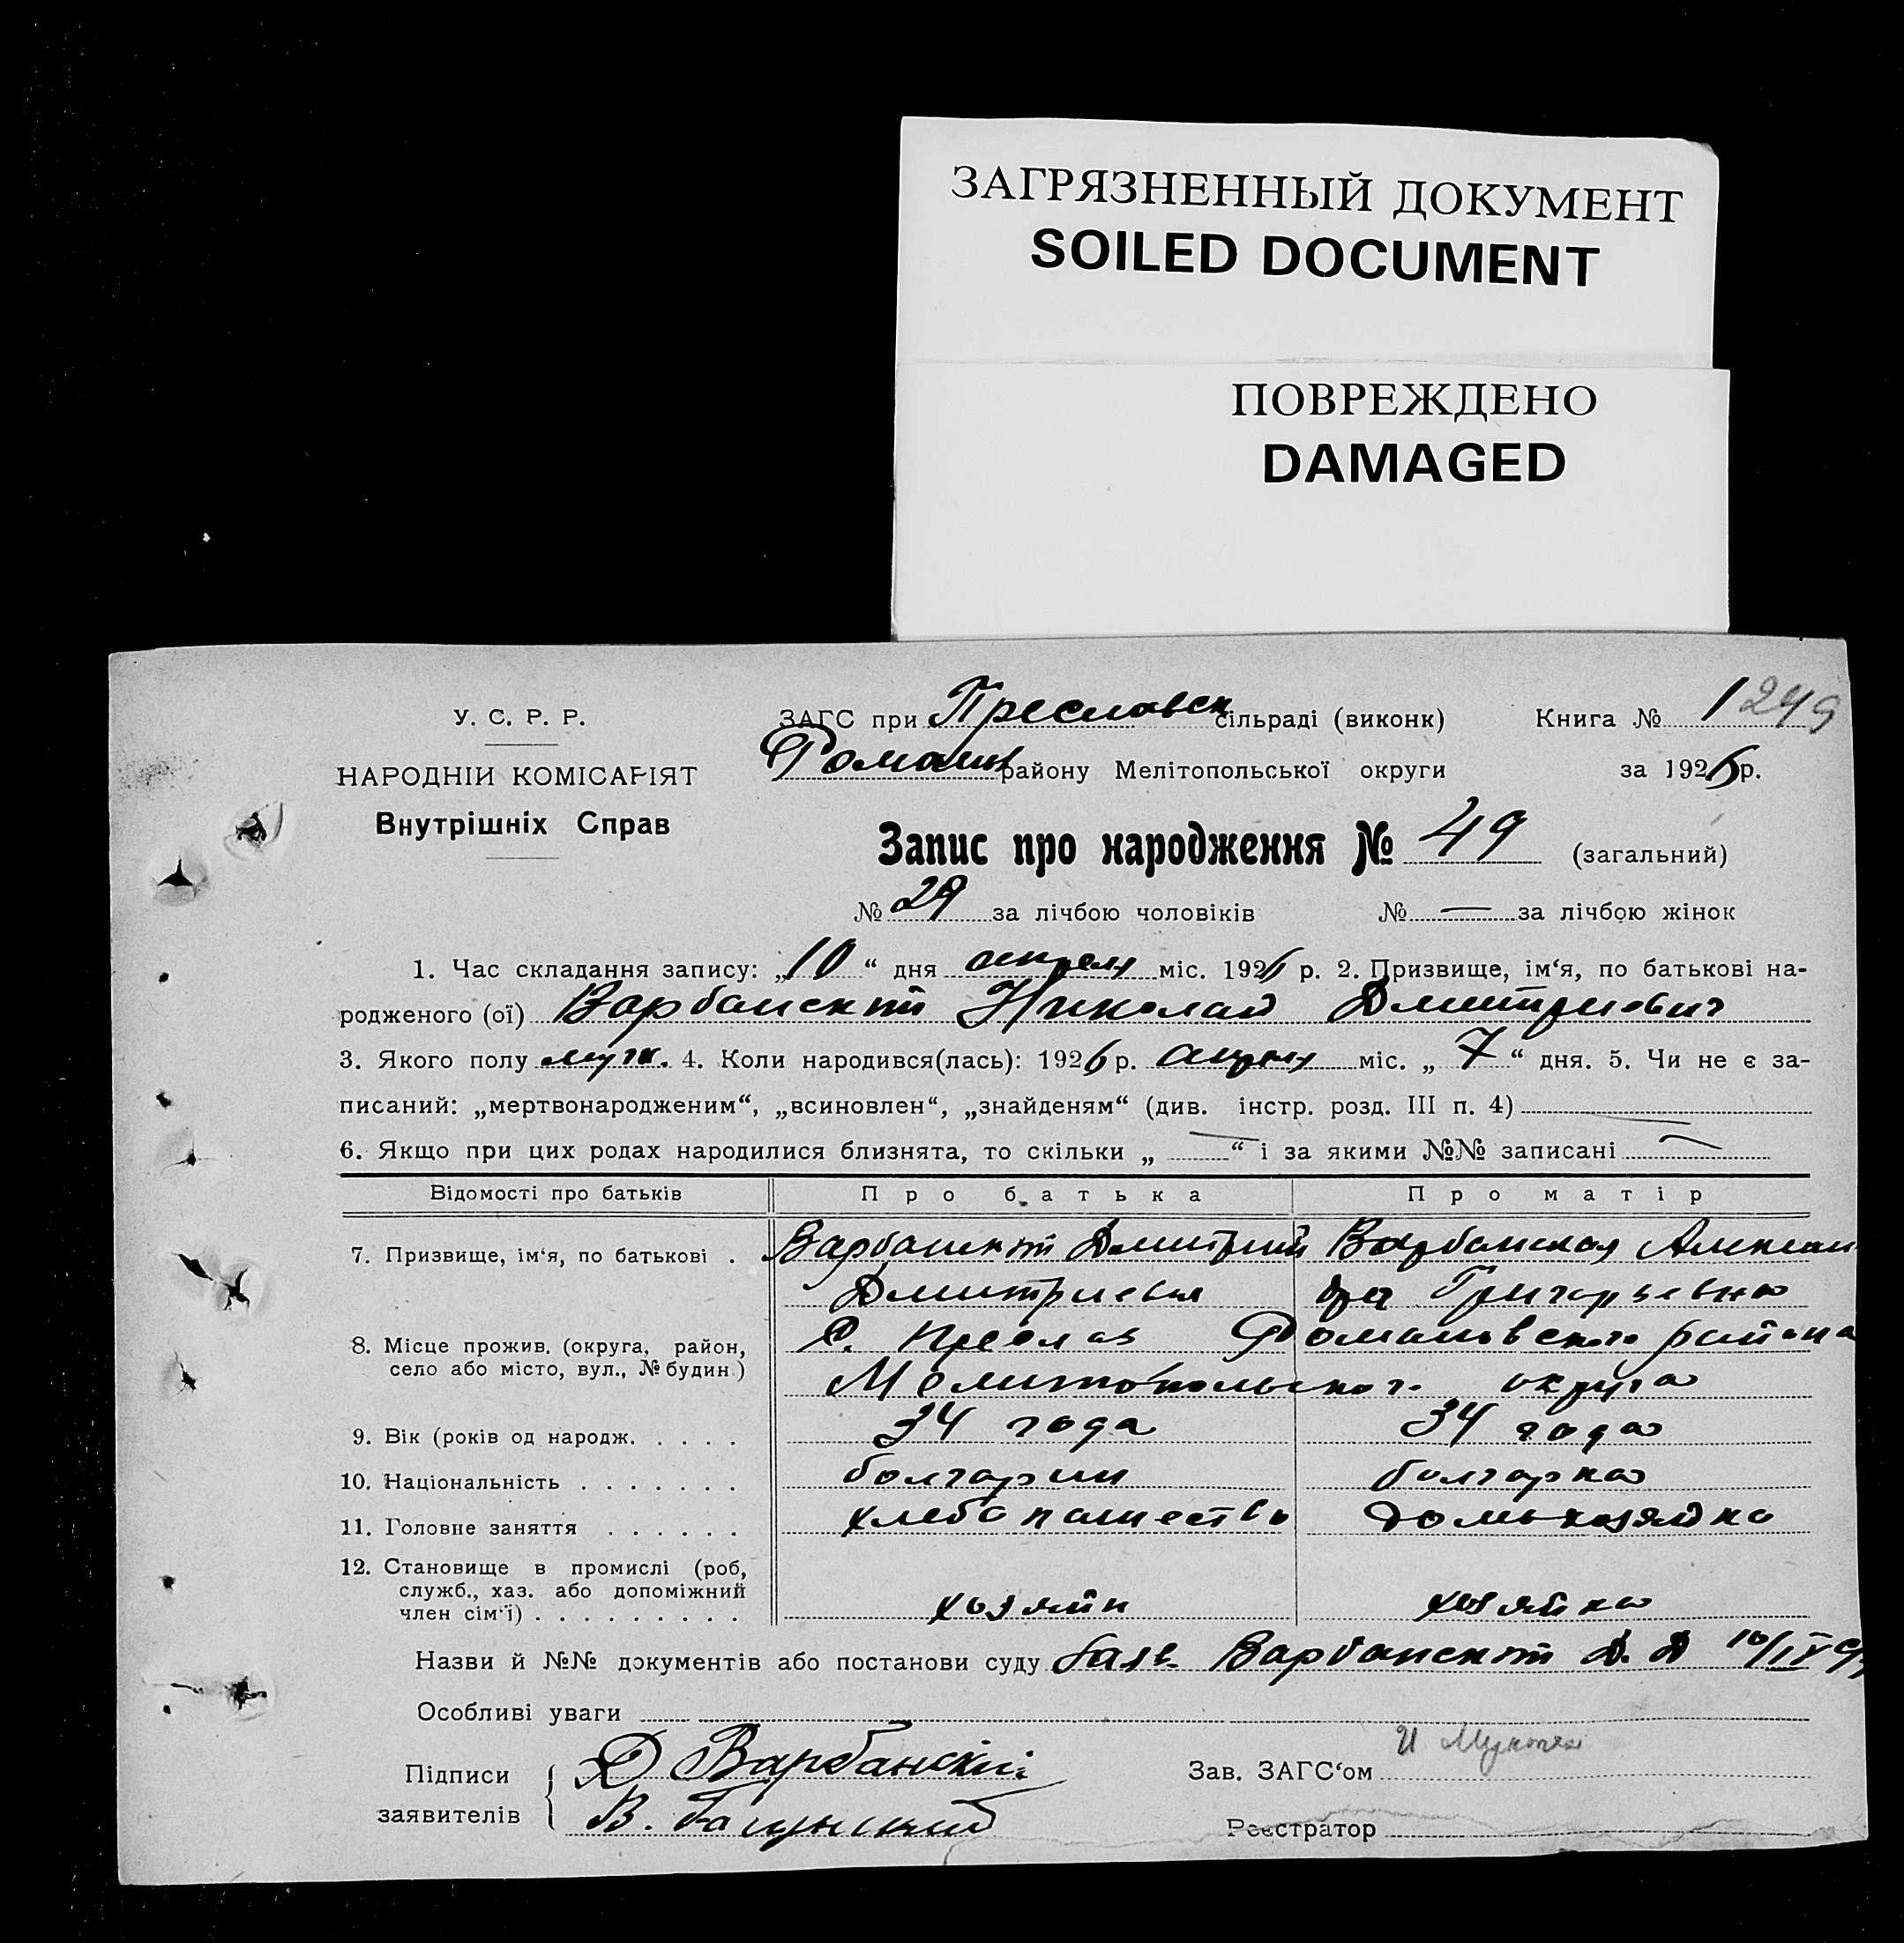 ЗАГРЯЗНЕННЫЙ ДОКУМЕНТ
SOILED DOCUMENT
ПОВРЕЖДЕНО
DAMAGED
У. С. Р. Р.
НАРОДНІЙ КОМІСАРІЯТ
Внутрішніх Справ
ЗАГС при Преславск сільраді (виконк) Книга № 1 249
Романов району Мелітопольської округи за 1926 р.
Запис про народження № 49 (загальний)
№ 29 за лічбою чоловіків № — за лічбою жінок
1. Час складання запису: „10“ дня апреля міс. 1926 р. 2. Призвище, ім‘я, по батькові на-
родженого (ої) Варбанский Николай Дмитриович
3. Якого полу муж. 4. Коли народився(лась): 1926 р. апреля міс. „7“ дня. 5. Чи не є за-
писаний: „мертвонародженим“, „всиновлен“, „знайденям“ (див. інстр. розд. III п. 4)
6. Якщо при цих родах народилися близнята, то скільки „ — “ і за якими №№ записані —
Відомості про батьків Про батька Про матір
7. Призвище, ім‘я, по батькові . Варбанский Дмитрий Варбанская Алексан
Дмитриевич дра Григорьевна
8. Місце прожив. (округа, район, С. Преслав Романовского района
село або місто, вул., № будин.) Мелитопольского округа
9. Вік (років од народж. . . . . 34 года 34 года
10. Національність . . . . . . . болгарин болгарка
11. Головне заняття . . . . . . хлебопашество домохозяйка
12. Становище в промислі (роб,
служб., хаз. або допоміжний
член сім‘ї) . . . . . . . . . хозяин хозяйка
Назви й №№ документів або постанови суду Заяв. Варбанский Д. Д 10/IV
Особливі уваги
Підписи Д Варбанскій
заявителів В.
Зав. ЗАГС‘ом И
Реєстратор